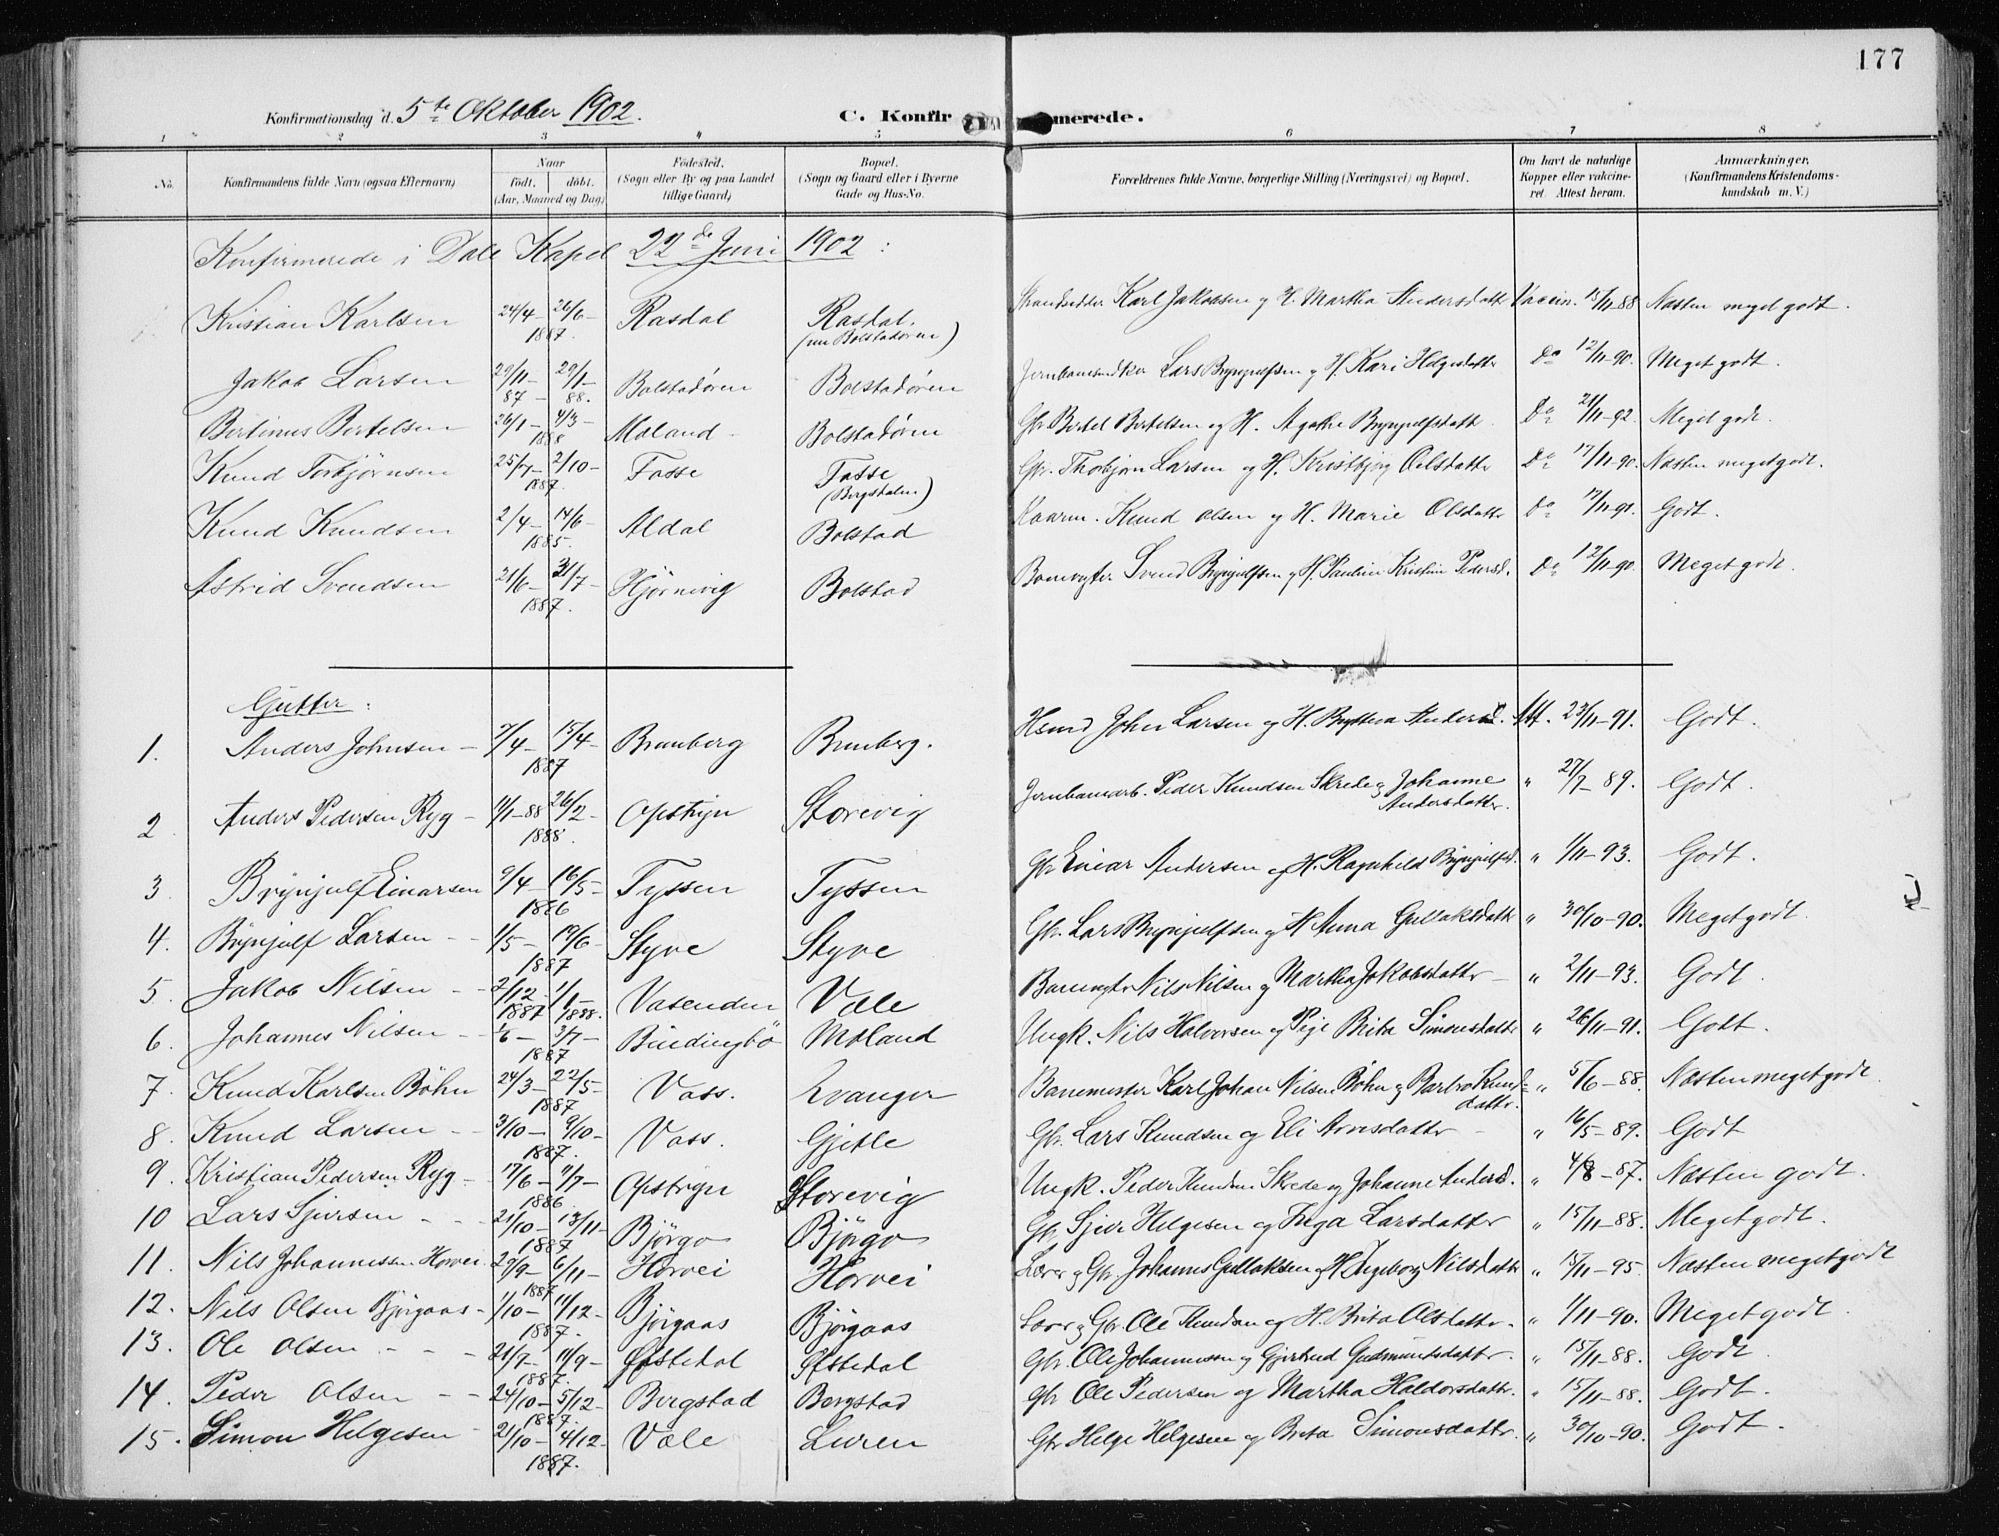 177
Konfirmationsdag d. 5te Oktober 1902.
C. Konfirmerede.
1 2 3 4 5 6 7 8
No. Konfirmandens fulde Navn (ogsaa Efternavn) Naar födt. döbt. (Aar, Maaned og Dag) Födested. (Sogn eller By og paa Landet tillige Gaard) Bopæl. (Sogn og Gaard eller i Byerne Gade og Hus-No. Forældrenes fulde Navne, borgerlige Stilling (Næringsvei) og Bopæl. Om havt de naturlige Kopper eller vakcineret. Attest herom. Anmærkninger. (Konfirmandens Kristendomskundskab m. V.)
Konfirmerede i Dale Kapel 22de Juni 1902:
Kristian Karlsen 24/4 - 26/6 - 1887. Rasdal Rasdal. (nu Bolstadøren) Strandsidder Karl Jakobsen og H. Martha Andersdatter Vaccin. 15/11 88 Næsten meget godt.
Jakob Larsen 29/11 - 87 - 29/1 - 88. Bolstadøren Bolstadøren Lars Brynjulfsen og H. Kari Helgesdatter Do 12/11-90. Meget godt.
Bertinus Bertelsen 26/1 - 4/3 - 1888 Moland - Bolstadøren Gbr Bertel Bertelsen og H. Agathe Brynjulfsdatt. Do 21/11-92. Meget godt.
Knud Torbjørnsen 25/7 - 2/10 - 1887. Fosse Fosse (Bergsdalen) Gbr. Thorbjørn Larsen og H. Kristbjørg Olsdatter Do 17/11-90. Næsten meget godt.
Knud Knudsen 2/4 - 14/6 - 1885. Aldal Bolstad Knud Olsen og H. Marie Olsdatter Do 17/11-91. Godt.
Astrid Svendsen 21/6 - 31/7 - 1887. Hjørnevig Bolstad Banevogter Svend Brynjulfsen og H. Pauline Kristine Pedersd. Do 12/11-90. Meget godt.
Gutter:
1. Anders Johnsen - 7/4 - 15/4 - 1887 Brunberg Brunberg. Hsmd John Larsen og H. Brytteva Andersd. Att. 23/11-91. Godt.
2. Anders Pedersen Ryg - 11/1-88 26/2 - 1888. Opstryn Storevig Jernbanearb. Peder Knudsen Skrede og Johanne Andersdatter. " 27/7-89. Godt.
3. Brynjulf Einarsen 9/4 - 16/5 - 1886 Tyssen Tyssen Gbr Einar Andersen og H. Ragnhild Brynjulfsd. " 1/11-93. Godt.
4. Brynjulf Larsen - - 1/5 - 19/6 - 1887 Styve Styve Gbr. Lars Brynjulfsen og H Anna Gullaksdatter " 30/10-90. Meget godt.
5. Jakob Nilsen - - 2/12 - 1887 1/1 - 1888. Vasenden Væle Banevogter Nils Nilsen og Martha Jakobsdatter - " 2/11-93. Godt
6. Johannes Nilsen - - 1/6 - 3/7 - 1887 Bindingbø Moland Ungk. Nils Halvorsen og Pige Brita Simonsdatter " 26/11-91. Godt.
7. Knud Karlsen Böhn 24/3 - 22/5 - 1887 Voss. Evanger Banemester Karl Johan Nilsen Böhn og Barbro Knudsdatter. " 5/6-88. Næsten meget godt
8. Knud Larsen - - 3/10 - 9/10 - 1887. Voss. Gjetle Gbr. Lars Knudsen og Eli Arvesdatter - " 16/5-89. Godt
9. Kristian Pedersen Ryg - 17/6 - 11/7 - 1886 Opstryn Storevig Ungk. Peder Knudsen Skrede og Johanne Andersd. " 4/8-87. Næsten godt.
10 Lars Sjursen - - 21/10 - 13/11 - 1887 Bjørgo Bjørgo Gbr Sjur Helgesen og Inga Larsdatter " 15/11-88. Meget godt.
11. Nils Johannessen Horvei. 29/9 - 6/11 - 1887 Horvei Horvei Lærer og Gbr. Johannes Gullaksen og H. Ingeborg Nilsdatter " 15/11-95. Næsten meget godt
12. Nils Olsen Bjørgaas - 1/10 - 11/12 - 1887. Bjørgaas Bjørgaas Lærer og Gbr. Ole Knudsen og H. Brita Olsdatter. " 1/11-90. Meget godt.
13. Ole Olsen - - - 21/7 - 11/9 - 1887. Øfstedal Øfstedal Gbr. Ole Johannessen og Gjertrud Gudmundsdatter. " 15/11-88. Godt.
14. Peder Olsen - - 24/10 - 5/12 - 1887. Bergstad Bergstad Gbr Ole Pedersen og Martha Haldorsdatter. " 15/11-88. Godt.
15. Simon Helgesen - 21/10 - 4/12 - 1887. Væle Luren Gbr Helge Helgesen og Brita Simonsdatter. " 30/10-90. Godt.